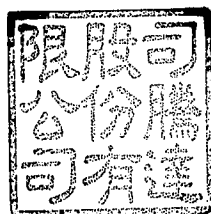 司騰達
股份有
限公司